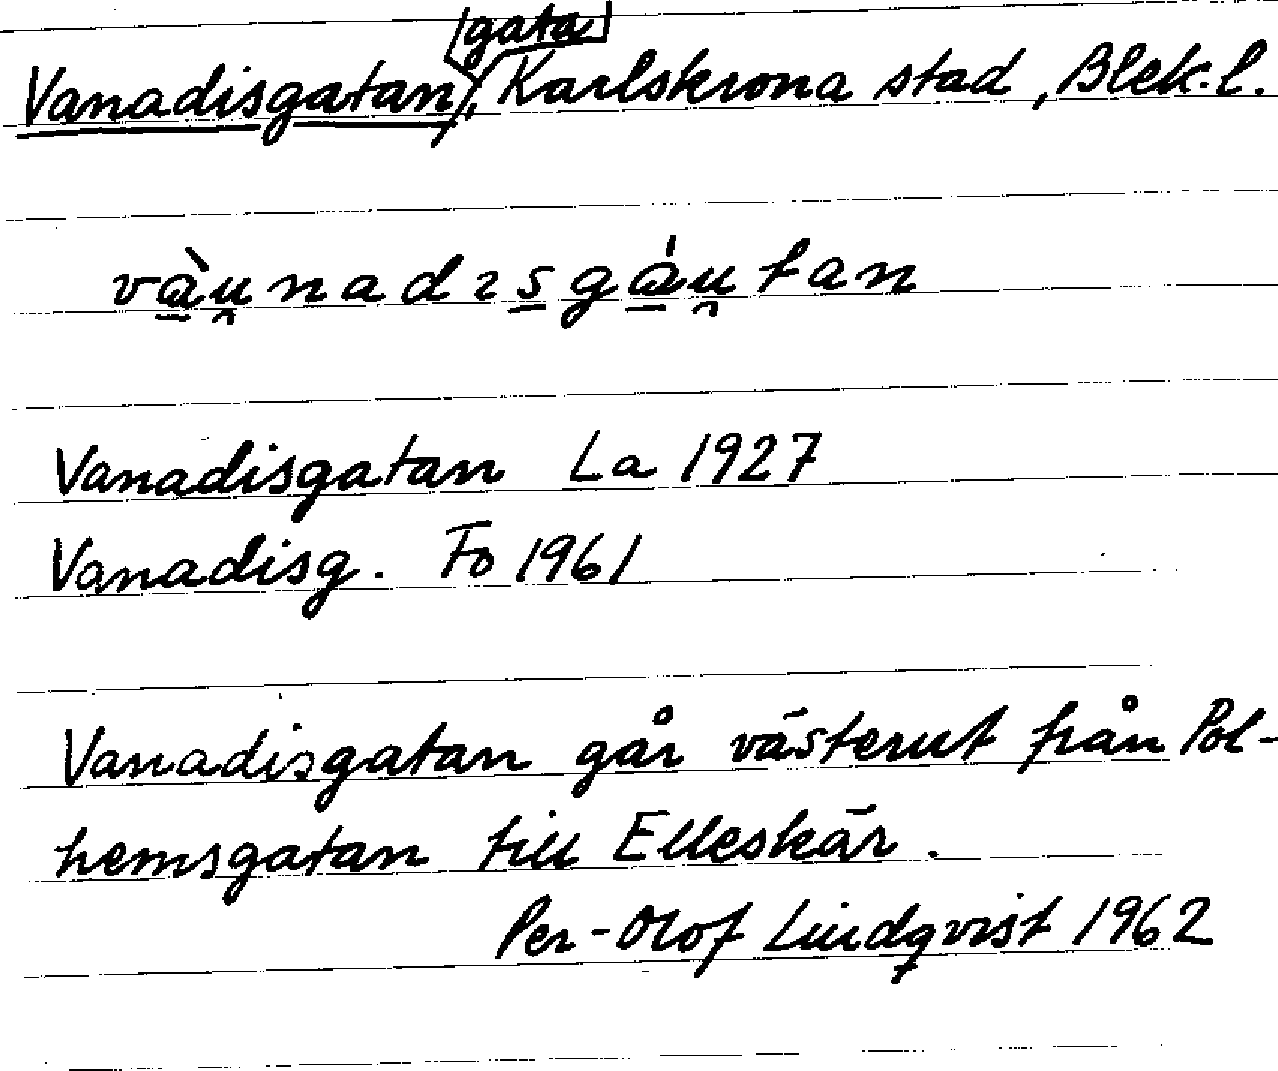 Vanadisgatan, gata, Karlskrona stad, Blek. l.
vàu̯nadısgáu̯tan
Vanadisgatan La 1927
Vanadisg. Fo 1961
Vanadisgatan går västerut från Pol-
hemsgatan till Elleskär.
Per-Olof Lindqvist 1962